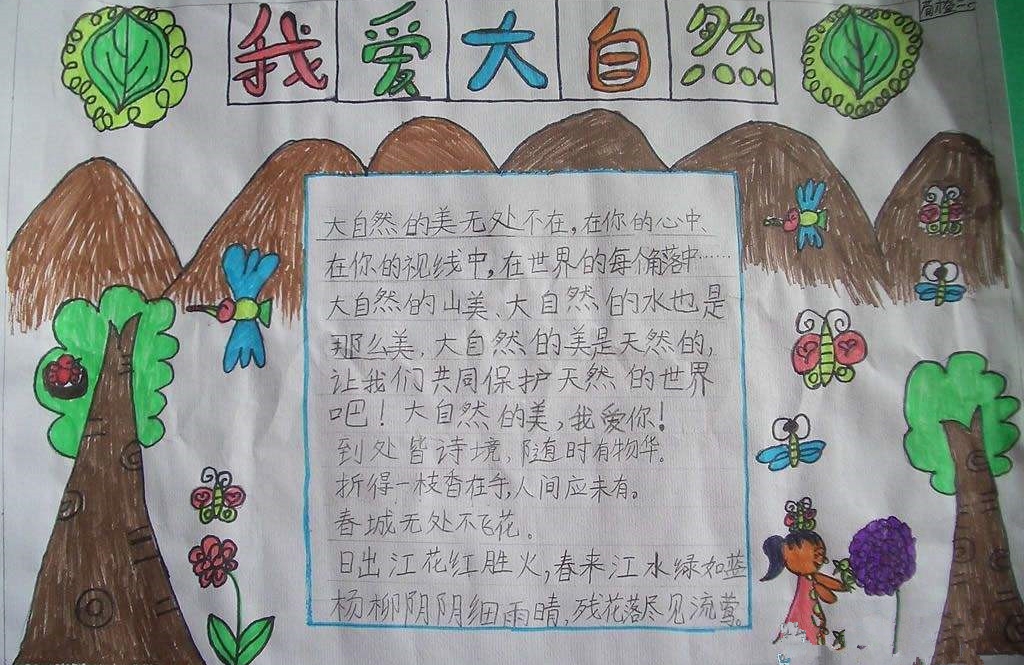 我爱大自然
大自然的美无处不在,在你的心中、
在你的视线中,在世界的每个角落中……
大自然的山美、大自然的水也是
那么美,大自然的美是天然的,
让我们共同保护天然的世界
吧!大自然的美,我爱你!
到处皆诗境,随时有物华。
折得一枝香在手,人间应未有。
春城无处不飞花。
日出江花红胜火,春来江水绿如蓝
杨柳阴阴细雨晴,残花落尽见流莺。